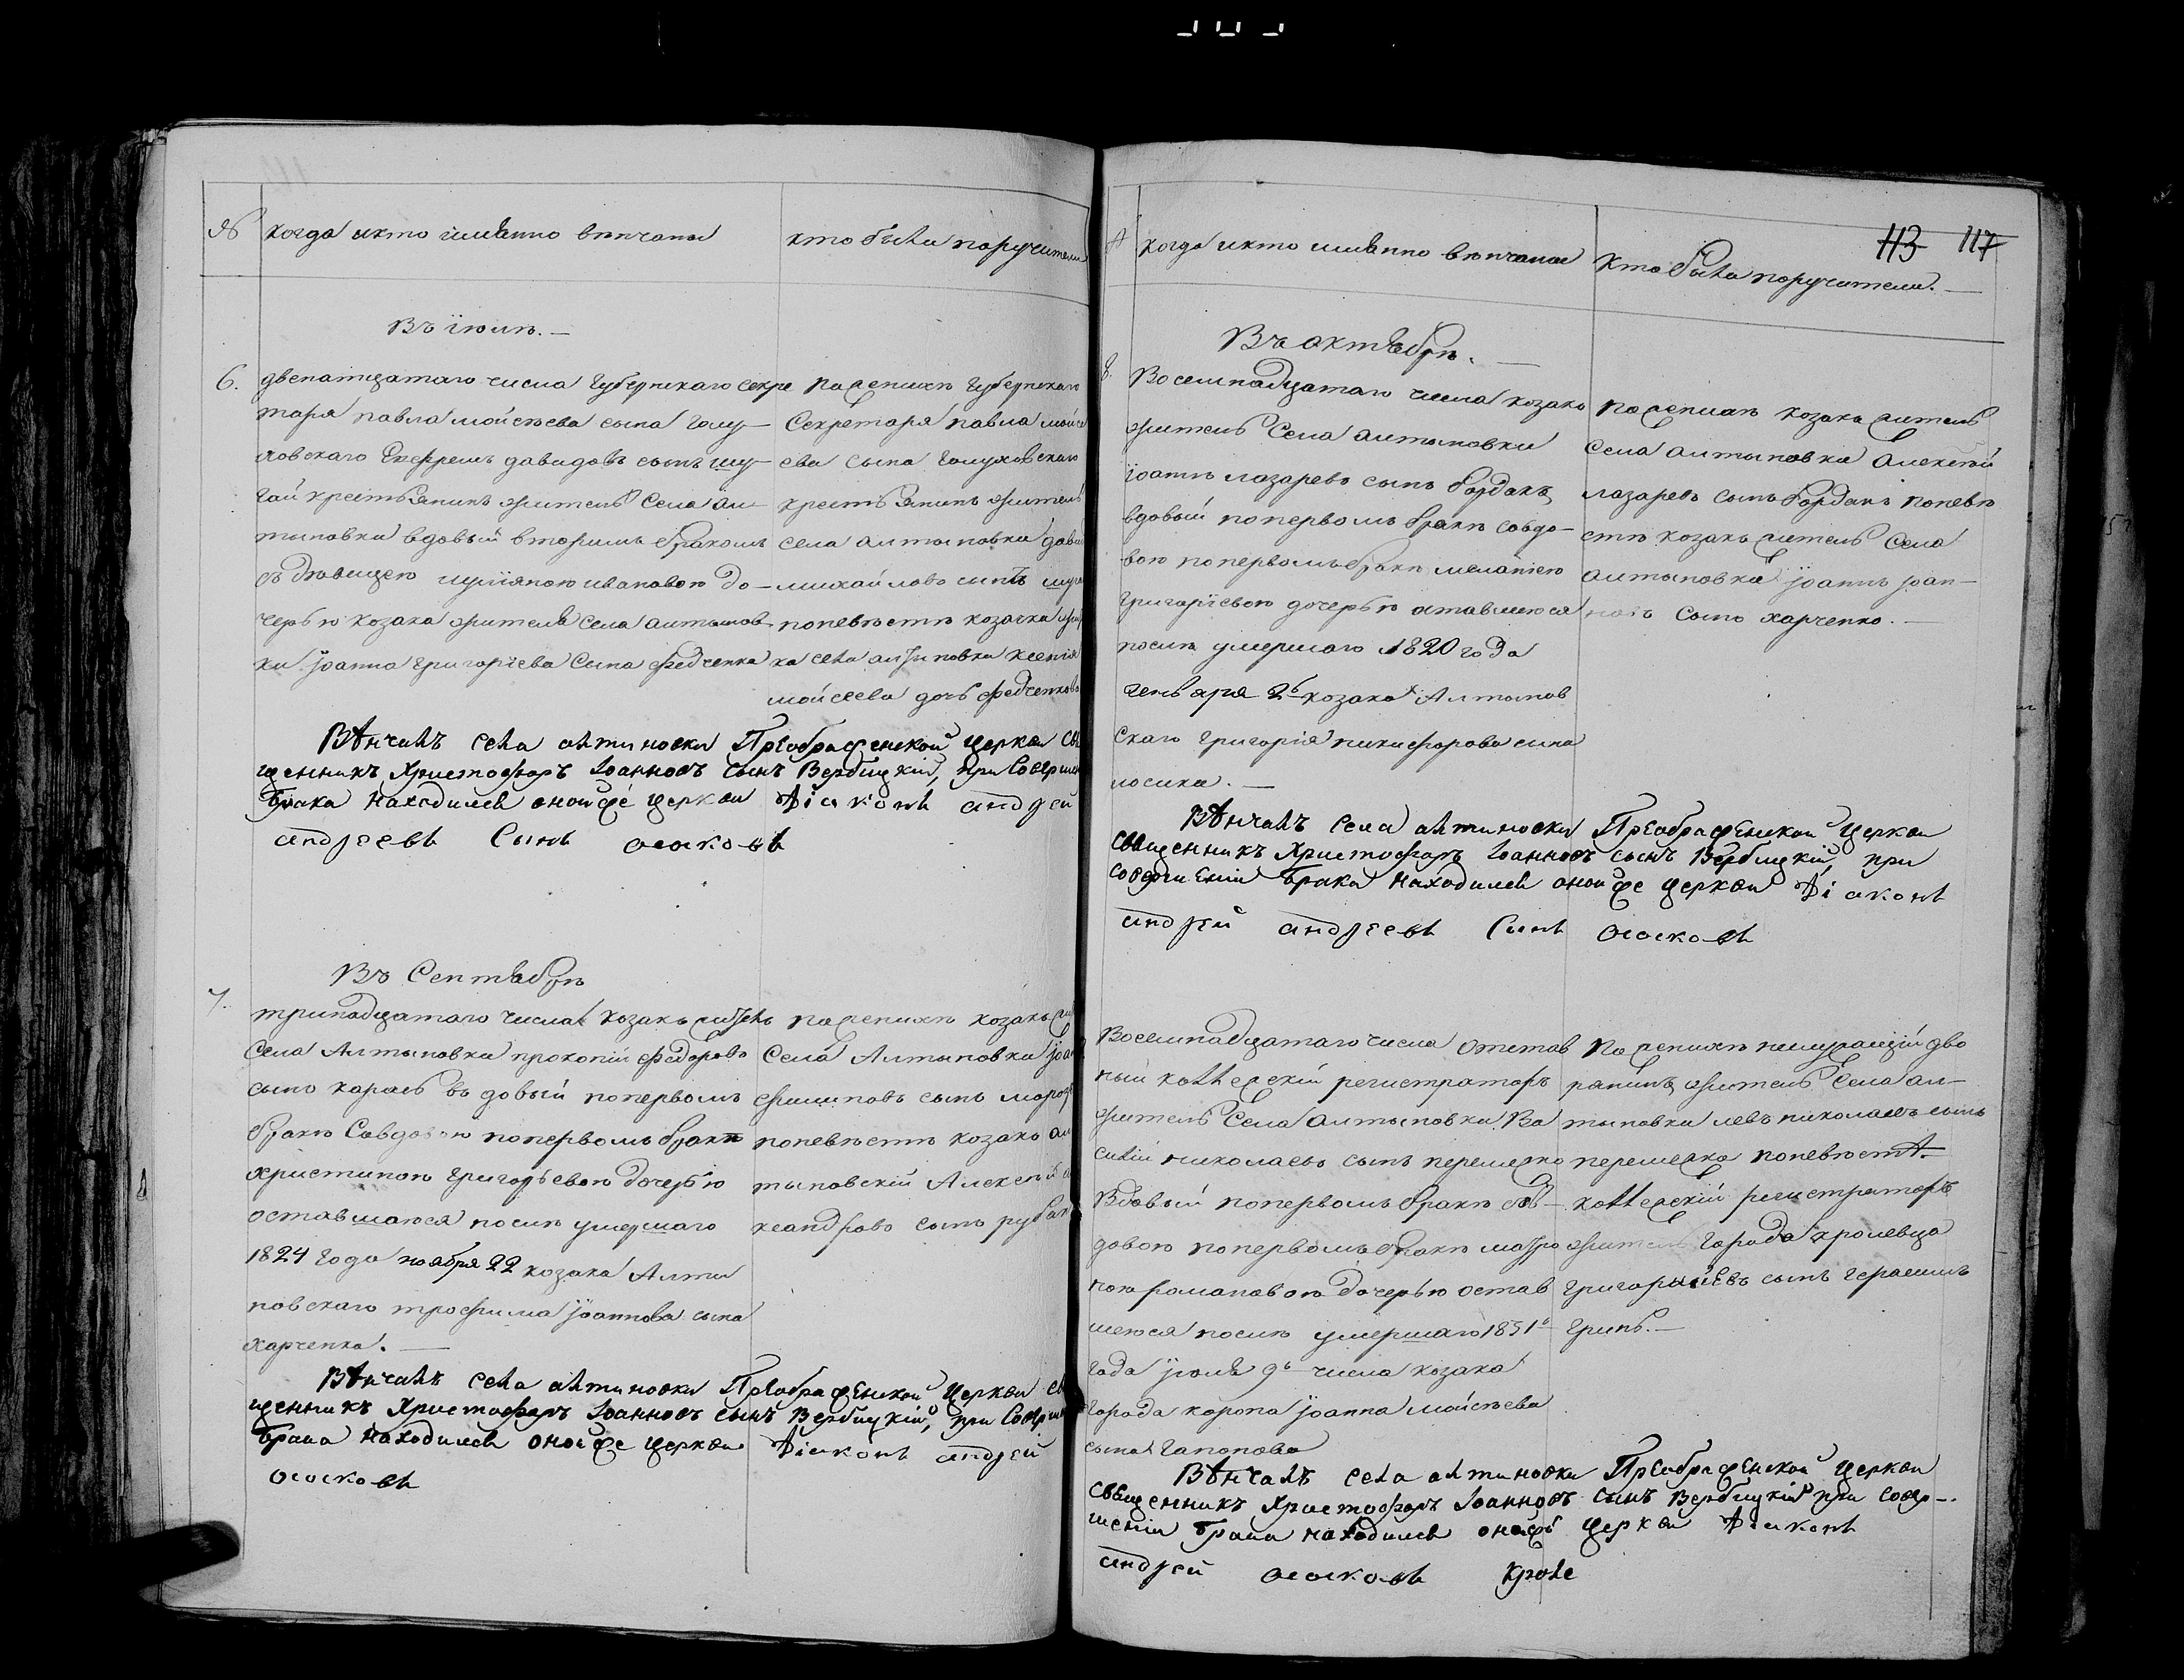 № когда икто именно венчаны
кто были поручители
Въ июлѣ.
6. двенатцатаго числа Губернскаго секре
таря павла мойсѣева сына голу
ховскаго Ефремъ давидовъ сынъ шу
гай крестьянинъ житель Села ал
тыновки вдовый вторимъ бракомъ
съ дѣвицею иулияною ивановою до
черью козака жителя Села алтынов
ки Иоанна григориева Сына федченка
По женихѣ Губернскаго
Секретаря павла мойсѣ
ева сына голуховскаго
крестьянинъ житель
села алтыновки
михайловъ сынъ
поневѣстѣ козачка
ка села алтыновки ксения
мойсеева дочь федченкова
Вѣнчалъ села алтиновки Преображенской церкви Св
щенникъ Христофоръ Иоанновъ сынъ Вербицкий, при Соверше
брака находился оной же церкви Диаконъ андрей
андреевъ Сынъ ососковъ
Въ Сентябрѣ
7. тринадцатаго числа козакъ житель
Села Алтыновки прокопий федоровъ
сынъ карась вдовый попервомъ
бракѣ Совдовою попервомъ бракѣ
христиною григорьевою дочерью
оставшаюся послѣ умершаго
1824 года ноября 22 козака Алти
новскаго трофима иоаннова сына
харченка.
По женихѣ козакъ
Села Алтыновки
филиповъ сынъ
поневѣстѣ козакъ ал
тыновский Алексей
ксандровъ сынъ
Вѣнчалъ села алтиновки Преображенской Церкви св
щенникъ Христофоръ Иоанновъ сынъ Вербицкий, при Соверше
брака находился оной же церкви Диаконъ андрей
ососковъ
когда икто именно венчаные
кто были поручители.
113 117
Въ октябрѣ.
8. Восемнадцатаго числа козакъ
житель Села алтыновки
иоаннъ лазаревъ сынъ бордакъ
вдовый попервомъ бракѣ совдо
вою попервомъ бракѣ меланиею
григориевою дочерью оставшеюся
послѣ умершаго 1820 года
генваря 26 козака Алтынов
скаго григория никифорова сина
носика.
По женихѣ козакъ житель
Села алтыновки Алексѣй
лазаревъ сынъ бордакъ поневѣ
стѣ козакъ житель Села
алтыновки иоаннъ иоан
новъ сынъ харченко.
Вѣнчалъ Села алтиновки Преображенской Церкви
священникъ Христофоръ Иоанновъ сынъ Вербицкий, при
совершении брака находился оной же церкви Диаконъ
андрей андреевъ Сынъ ососковъ
Восемнадцатаго числа отстав
ный коллежский регистраторъ
житель Села алтыновки Ва
силий николаевъ сынъ
Вдовый попервомъ бракѣ совъ
довою попервомъ бракѣ матро
ною романовою дочерью остав
шеюся послѣ умершаго 1831
года июля 9 числа козака
города коропа иоанна мойсѣева
сына гапонова
По женихѣ неслужащий дво
ранинъ житель Села ал
тыновки левъ николаевъ сынъ
поневѣстѣ
коллежский регистраторъ
житель Города кролевца
сынъ герасимъ
Вѣнчалъ села алтиновки Преображенской Церкви
священникъ Христофоръ Иоанновъ сынъ Вербицкий при совер
шении брака находился онойже церкви Диаконъ
андрей ососковъ Кроле